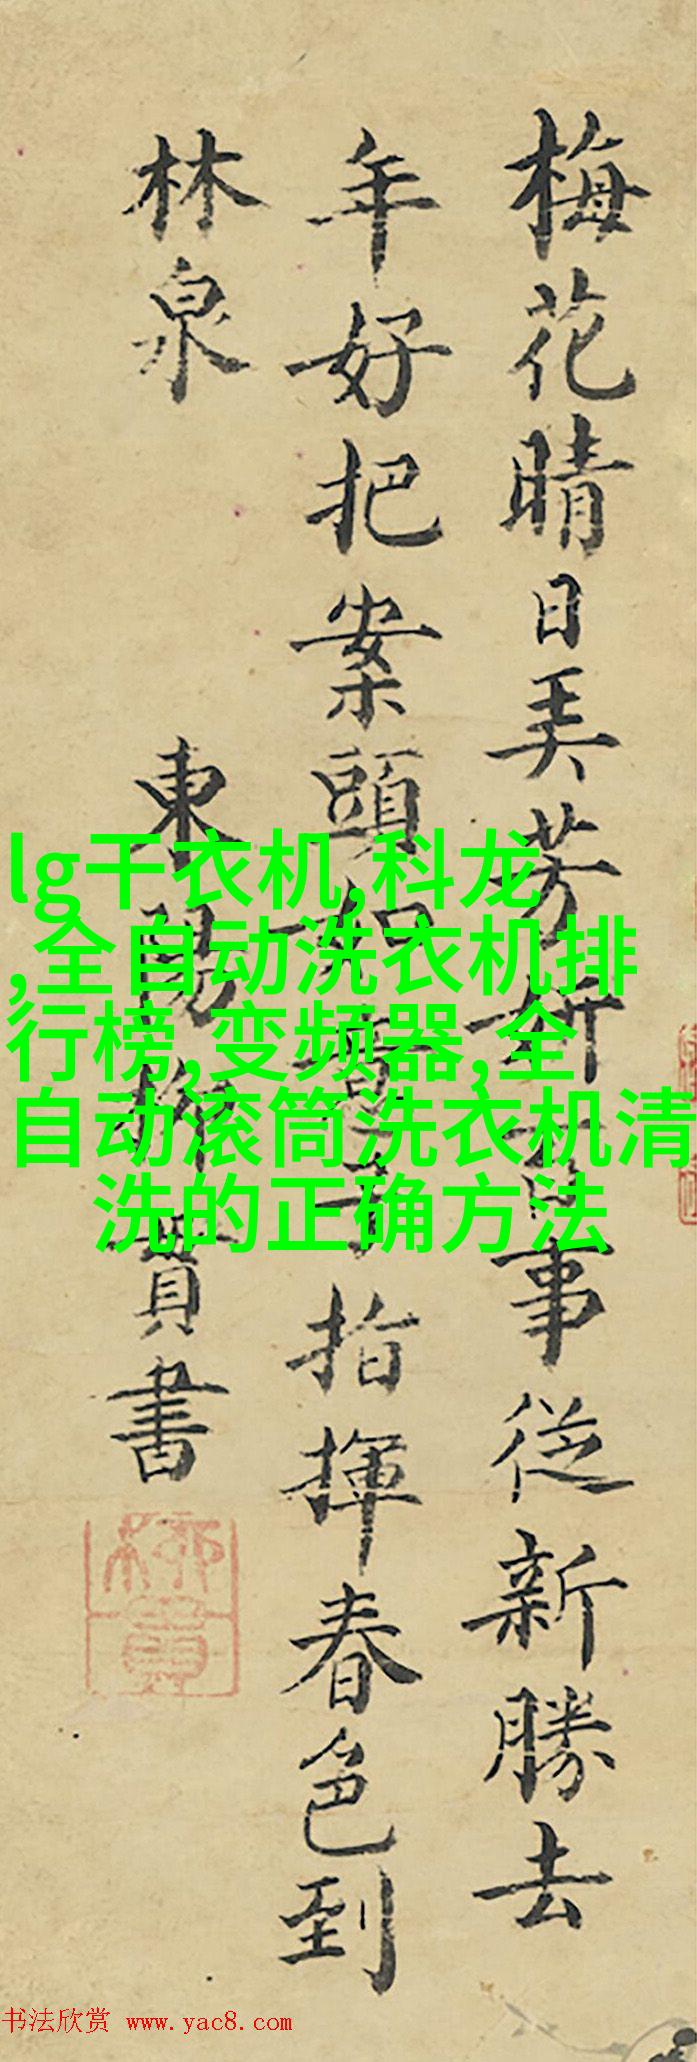 梅花晴日美芳新百事从新勝去
年好把案頭如意子指揮春色到
林泉
東陽柳貫書
柳貫
lg干衣机,科龙
,全自动洗衣机排
行榜,变频器,全
自动滚筒洗衣机清
洗的正确方法
书法欣赏 www.yac8.com